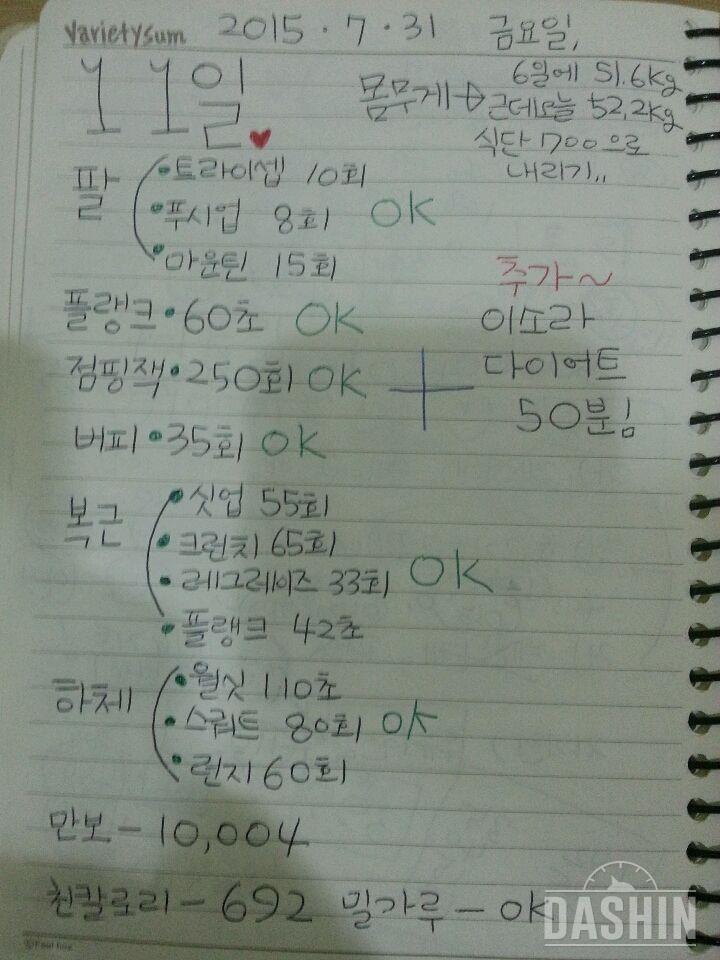 Varietysum 2015 · 7 · 31 금요일,
11일
몸무게→ 6일에 51.6kg
근데오늘 52.2kg
식단 700으로
내리기,,
팔 • 트라이셉 10회
• 푸시업 8회 OK
• 마운틴 15회
플랭크 • 60초 OK
점핑잭 • 250회 OK
버피 • 35회 OK
+
추가~
이소라
다이어트
50분님
복근 • 싯업 55회
• 크런치 65회
• 레그레이즈 33회 OK
• 플랭크 42초
하체 • 월싯 110초
• 스쿼트 80회 OK
• 런지 60회
만보 - 10,004
천칼로리 - 692 밀가루 - OK
DASHIN